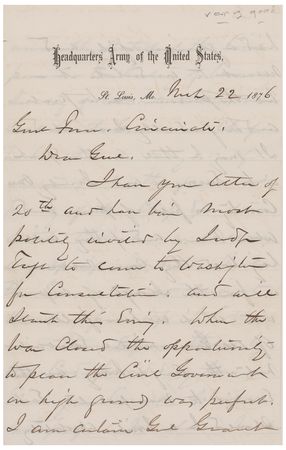 very good
Headquarters Army of the United States,
St. Louis, Mo. Mch 22 1876
Cincinnati.
Dear Genl.
I have your letter of
20th and have been most
politely invited by Judge
Taft to come to Washington
for Consultation. and will
Start this Evng. When the
War Closed the opportunity
to place the Civil Governmt
on high ground, was perfect.
I am certain Genl Grant